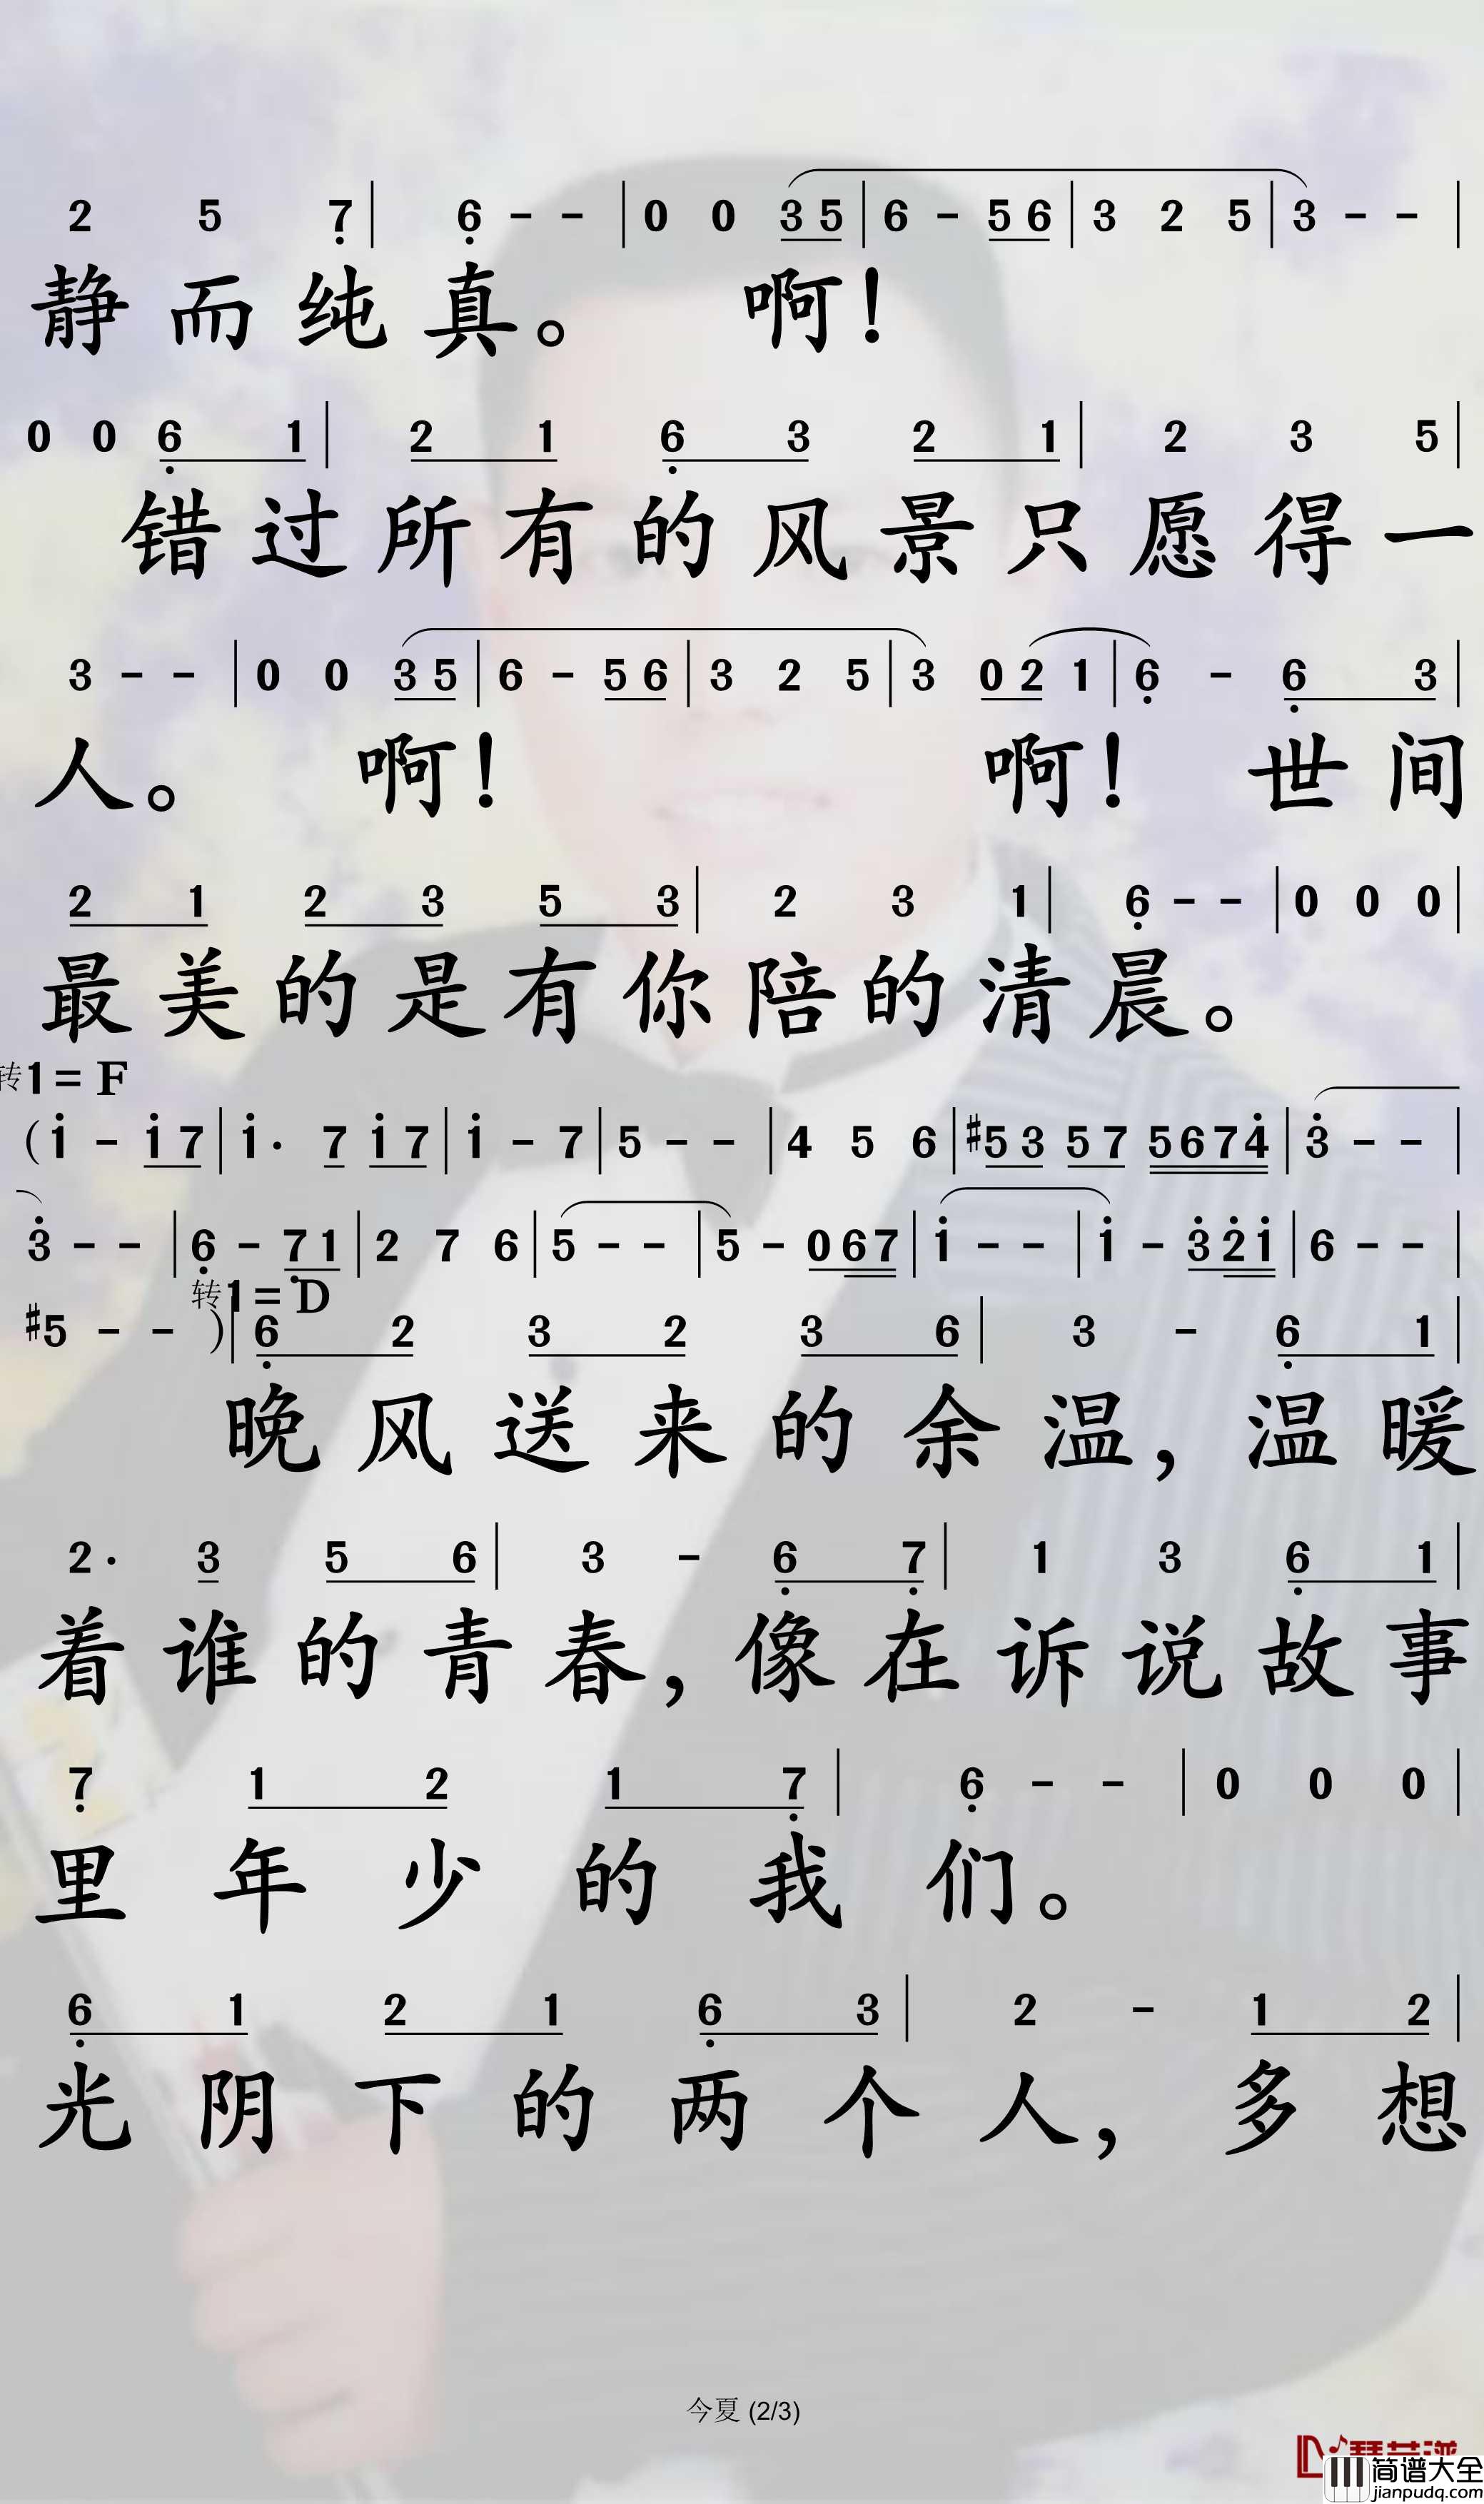 2 5 7 | 6 - - | 0 0 3 5 | 6 - 5 6 | 3 2 5 | 3 - - |
静而纯真。 啊！
0 0 6 1 | 2 1 6 3 2 1 | 2 3 5 |
错过所有的风景只愿得一
3 - - | 0 0 3 5 | 6 - 5 6 | 3 2 5 | 3 0 2 1 | 6 - 6 3 |
人。 啊！ 啊！ 世间
2 1 2 3 5 3 | 2 3 1 | 6 - - | 0 0 0 |
最美的是有你陪的清晨。
转1= F
( 1 - 1 7 | 1 · 7 1 7 | 1 - 7 | 5 - - | 4 5 6 | #5 3 5 7 5 6 7 4 | 3 - - |
3 - - | 6 - 7 1 | 2 7 6 | 5 - - | 5 - 0 6 7 | 1 - - | 1 - 3 2 1 | 6 - - |
转1= D
#5 - - ) | 6 2 3 2 3 6 | 3 - 6 1 |
晚风送来的余温，温暖
2 · 3 5 6 | 3 - 6 7 | 1 3 6 1 |
着谁的青春，像在诉说故事
7 1 2 1 7 | 6 - - | 0 0 0 |
里年少的我们。
6 1 2 1 6 3 | 2 - 1 2 |
光阴下的两个人，多想
今夏 (2/3)
简谱大全
jianpudq.com